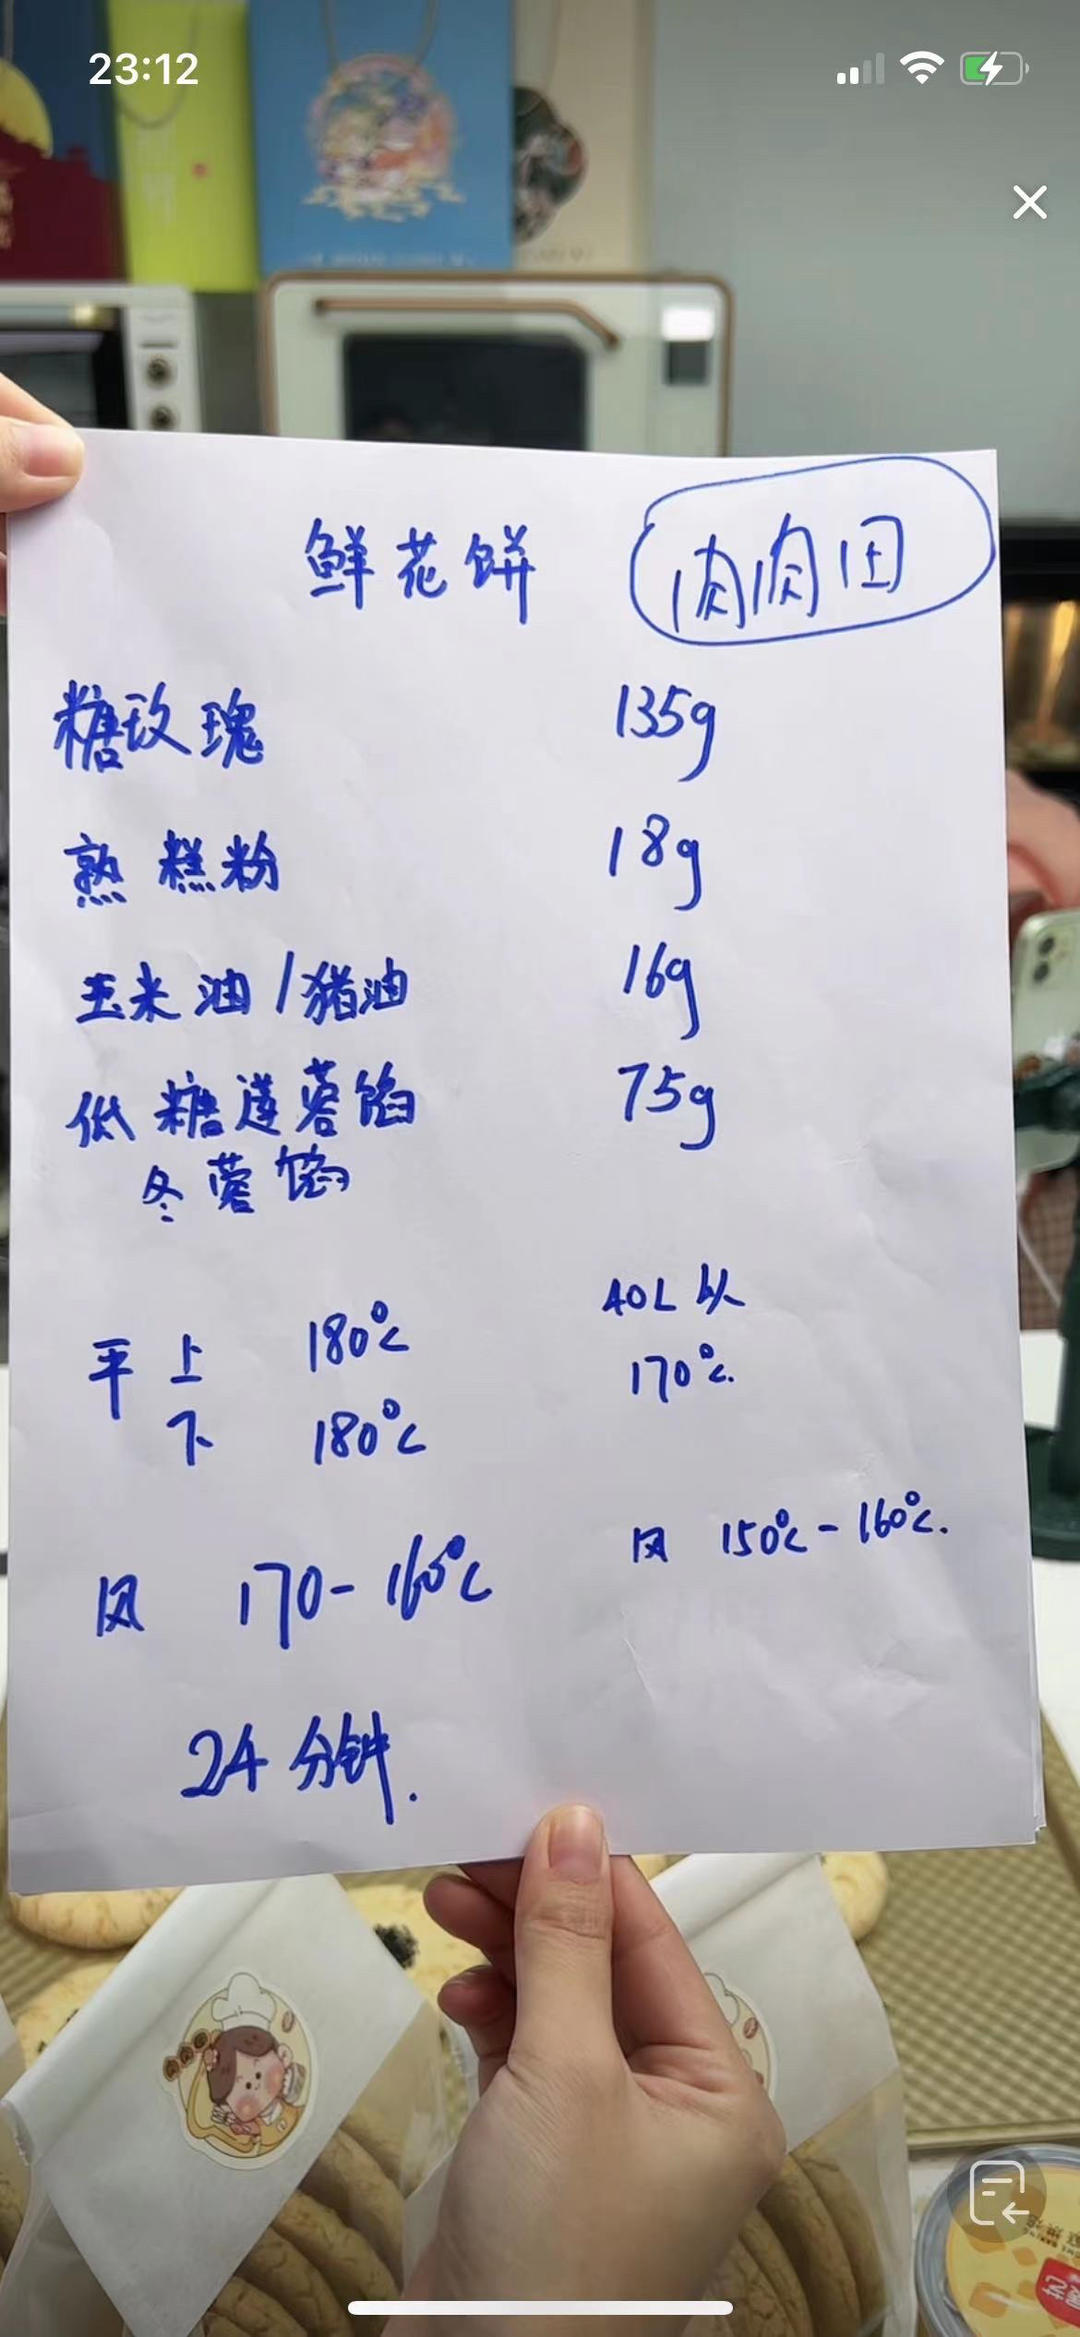 23:12
鲜花饼 肉肉田
糖玫瑰 135g
熟糕粉 18g
玉米油/猪油 16g
低糖莲蓉馅 75g
冬蓉馅
40L 以
平 上 180℃
170℃.
下 180℃
风 150℃-160℃.
风 170-160℃
24分钟.